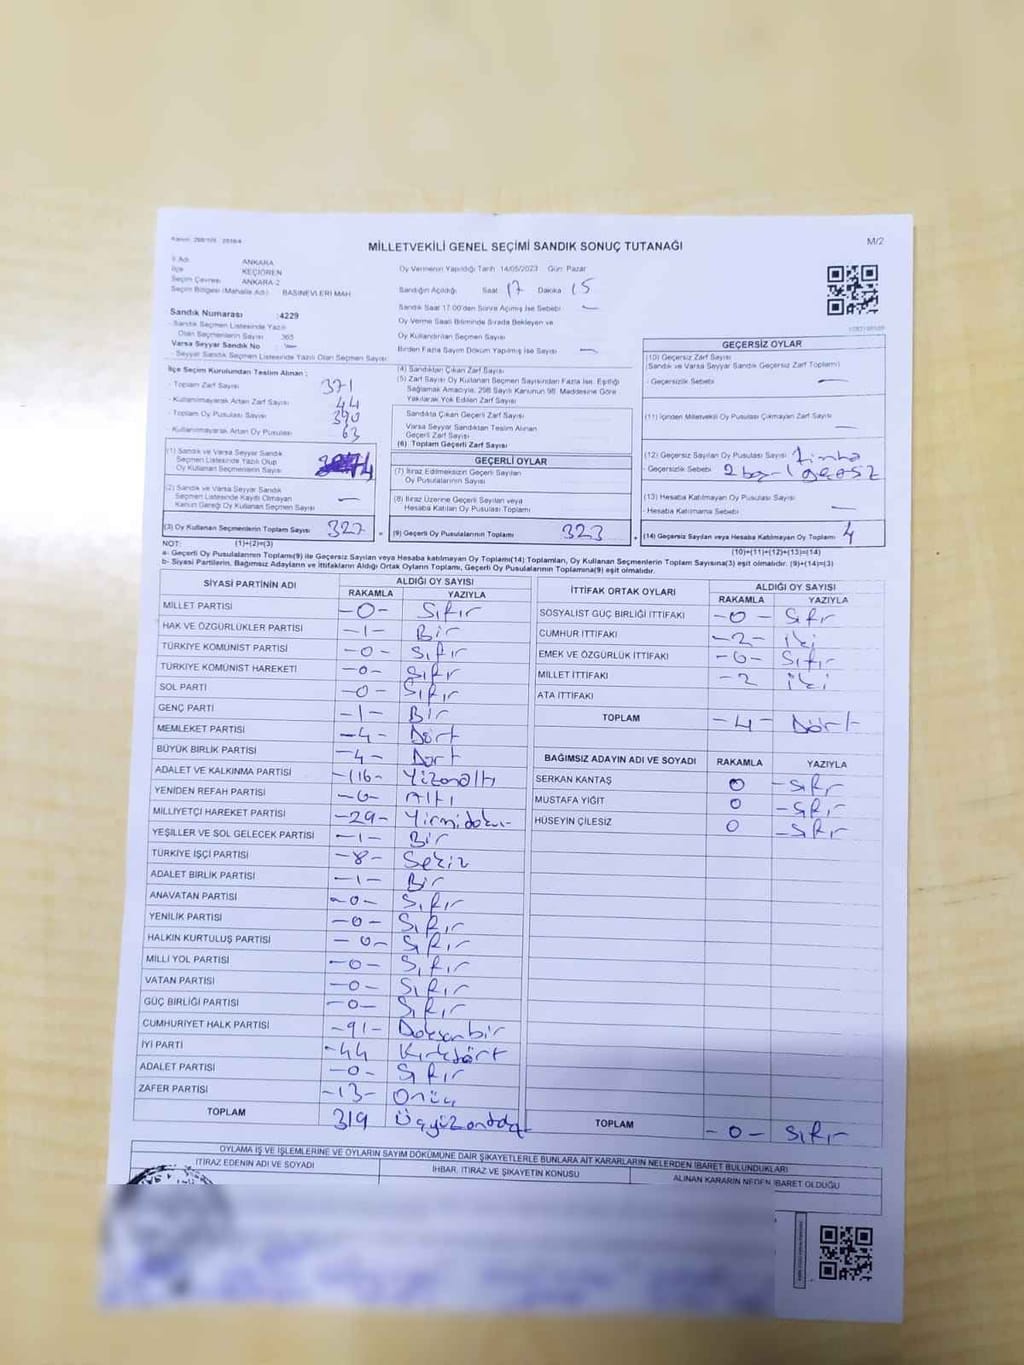 MİLLETVEKİLİ GENEL SEÇİMİ SANDIK SONUÇ TUTANAĞI
M/2
İl Adı ANKARA
İlçe KEÇİÖREN
Seçim Çevresi ANKARA-2
Seçim Bölgesi (Mahalle Adı) BASINEVLERİ MAH
Sandık Numarası :4229
- Sandık Seçmen Listesinde Yazılı
Olan Seçmenlerin Sayısı 365
Varsa Seyyar Sandık No : —
- Seyyar Sandık Seçmen Listesinde Yazılı Olan Seçmen Sayısı:
Oy Vermenin Yapıldığı Tarih 14/05/2023 Gün: Pazar
Sandığın Açıldığı Saat 17 Dakika 15
Sandık Saat 17:00'den Sonra Açılmış İse Sebebi —
Oy Verme Saati Bitiminde Sırada Bekleyen ve
Oy Kullandırılan Seçmen Sayısı
Birden Fazla Sayım Döküm Yapılmış İse Sayısı —
İlçe Seçim Kurulundan Teslim Alınan :
- Toplam Zarf Sayısı 371
- Kullanılmayarak Artan Zarf Sayısı 44
- Toplam Oy Pusulası Sayısı 390
- Kullanılmayarak Artan Oy Pusulası 63
(1) Sandık ve Varsa Seyyar Sandık
Seçmen Listesinde Yazılı Olup
Oy Kullanan Seçmenlerin Sayısı
(2) Sandık ve Varsa Seyyar Sandık
Seçmen Listesinde Kayıtlı Olmayan
Kanun Gereği Oy Kullanan Seçmen Sayısı —
(3) Oy Kullanan Seçmenlerin Toplam Sayısı 327 =
(4) Sandıktan Çıkan Zarf Sayısı
(5) Zarf Sayısı Oy Kullanan Seçmen Sayısından Fazla İse, Eşitliği
Sağlamak Amacıyla, 298 Sayılı Kanunun 98. Maddesine Göre
Yakılarak Yok Edilen Zarf Sayısı
Sandıkta Çıkan Geçerli Zarf Sayısı
Varsa Seyyar Sandıktan Teslim Alınan
Geçerli Zarf Sayısı
(6) Toplam Geçerli Zarf Sayısı
GEÇERLİ OYLAR
(7) İtiraz Edilmeksizin Geçerli Sayılan
Oy Pusulalarının Sayısı
(8) İtiraz Üzerine Geçerli Sayılan veya
Hesaba Katılan Oy Pusulası Toplamı
(9) Geçerli Oy Pusulalarının Toplamı 323 +
GEÇERSİZ OYLAR
(10) Geçersiz Zarf Sayısı
(Sandık ve Varsa Seyyar Sandık Geçersiz Zarf Toplamı)
- Geçersizlik Sebebi: —
(11) İçinden Milletvekili Oy Pusulası Çıkmayan Zarf Sayısı
—
(12) Geçersiz Sayılan Oy Pusulası Sayısı
- Geçersizlik Sebebi 2 boş
(13) Hesaba Katılmayan Oy Pusulası Sayısı
- Hesaba Katılmama Sebebi —
(14) Geçersiz Sayılan veya Hesaba Katılmayan Oy Toplamı 4
NOT: (1)+(2)=(3) (10)+(11)+(12)+(13)=(14)
a- Geçerli Oy Pusulalarının Toplamı(9) ile Geçersiz Sayılan veya Hesaba katılmayan Oy Toplamı(14) Toplamları, Oy Kullanan Seçmenlerin Toplam Sayısına(3) eşit olmalıdır. (9)+(14)=(3)
b- Siyasi Partilerin, Bağımsız Adayların ve İttifakların Aldığı Ortak Oyların Toplamı, Geçerli Oy Pusulalarının Toplamına(9) eşit olmalıdır.
SİYASİ PARTİNİN ADI ALDIĞI OY SAYISI
RAKAMLA YAZIYLA
MİLLET PARTİSİ -0- Sıfır
HAK VE ÖZGÜRLÜKLER PARTİSİ -1- Bir
TÜRKİYE KOMÜNİST PARTİSİ -0- Sıfır
TÜRKİYE KOMÜNİST HAREKETİ -0- Sıfır
SOL PARTİ -0- Sıfır
GENÇ PARTİ -1- Bir
MEMLEKET PARTİSİ -4- Dört
BÜYÜK BİRLİK PARTİSİ -4- Dört
ADALET VE KALKINMA PARTİSİ -116- Yüzonaltı
YENİDEN REFAH PARTİSİ -6- Altı
MİLLİYETÇİ HAREKET PARTİSİ -29- Yirmidokuz
YEŞİLLER VE SOL GELECEK PARTİSİ -1- Bir
TÜRKİYE İŞÇİ PARTİSİ -8- Sekiz
ADALET BİRLİK PARTİSİ -1- Bir
ANAVATAN PARTİSİ -0- Sıfır
YENİLİK PARTİSİ -0- Sıfır
HALKIN KURTULUŞ PARTİSİ -0- Sıfır
MİLLİ YOL PARTİSİ -0- Sıfır
VATAN PARTİSİ -0- Sıfır
GÜÇ BİRLİĞİ PARTİSİ -0- Sıfır
CUMHURİYET HALK PARTİSİ -91- Doksanbir
İYİ PARTİ -44 Kırkdört
ADALET PARTİSİ -0- Sıfır
ZAFER PARTİSİ -13- Onüç
TOPLAM 319
İTTİFAK ORTAK OYLARI ALDIĞI OY SAYISI
RAKAMLA YAZIYLA
SOSYALİST GÜÇ BİRLİĞİ İTTİFAKI -0- Sıfır
CUMHUR İTTİFAKI -2- iki
EMEK VE ÖZGÜRLÜK İTTİFAKI -0- Sıfır
MİLLET İTTİFAKI -2 iki
ATA İTTİFAKI
TOPLAM -4- Dört
BAĞIMSIZ ADAYIN ADI VE SOYADI RAKAMLA YAZIYLA
SERKAN KANTAŞ 0 -Sıfır
MUSTAFA YİĞİT 0 -Sıfır
HÜSEYİN ÇİLESİZ 0 -Sıfır
TOPLAM -0- Sıfır
OYLAMA İŞ VE İŞLEMLERİNE VE OYLARIN SAYIM DÖKÜMÜNE DAİR ŞİKAYETLERLE BUNLARA AİT KARARLARIN NELERDEN İBARET BULUNDUKLARI
İTİRAZ EDENİN ADI VE SOYADI İHBAR, İTİRAZ VE ŞİKAYETİN KONUSU ALINAN KARARIN NEDEN İBARET OLDUĞU